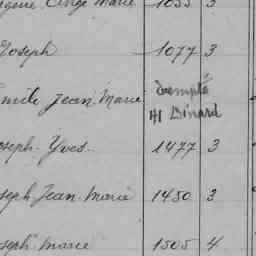 Ange Marie 1055 3
Joseph 1077 3
Jean Marie Dempté
141 Dinard
Joseph Yves 1477 3
Joseph Jean Marie 1450 3
Joseph Marie 1505 4